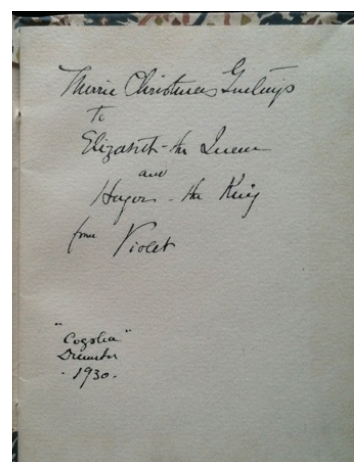 Merrie Christmas Greetings
to
Elizabeth - the Queen
and
- the King
from Violet
December
- 1930 -